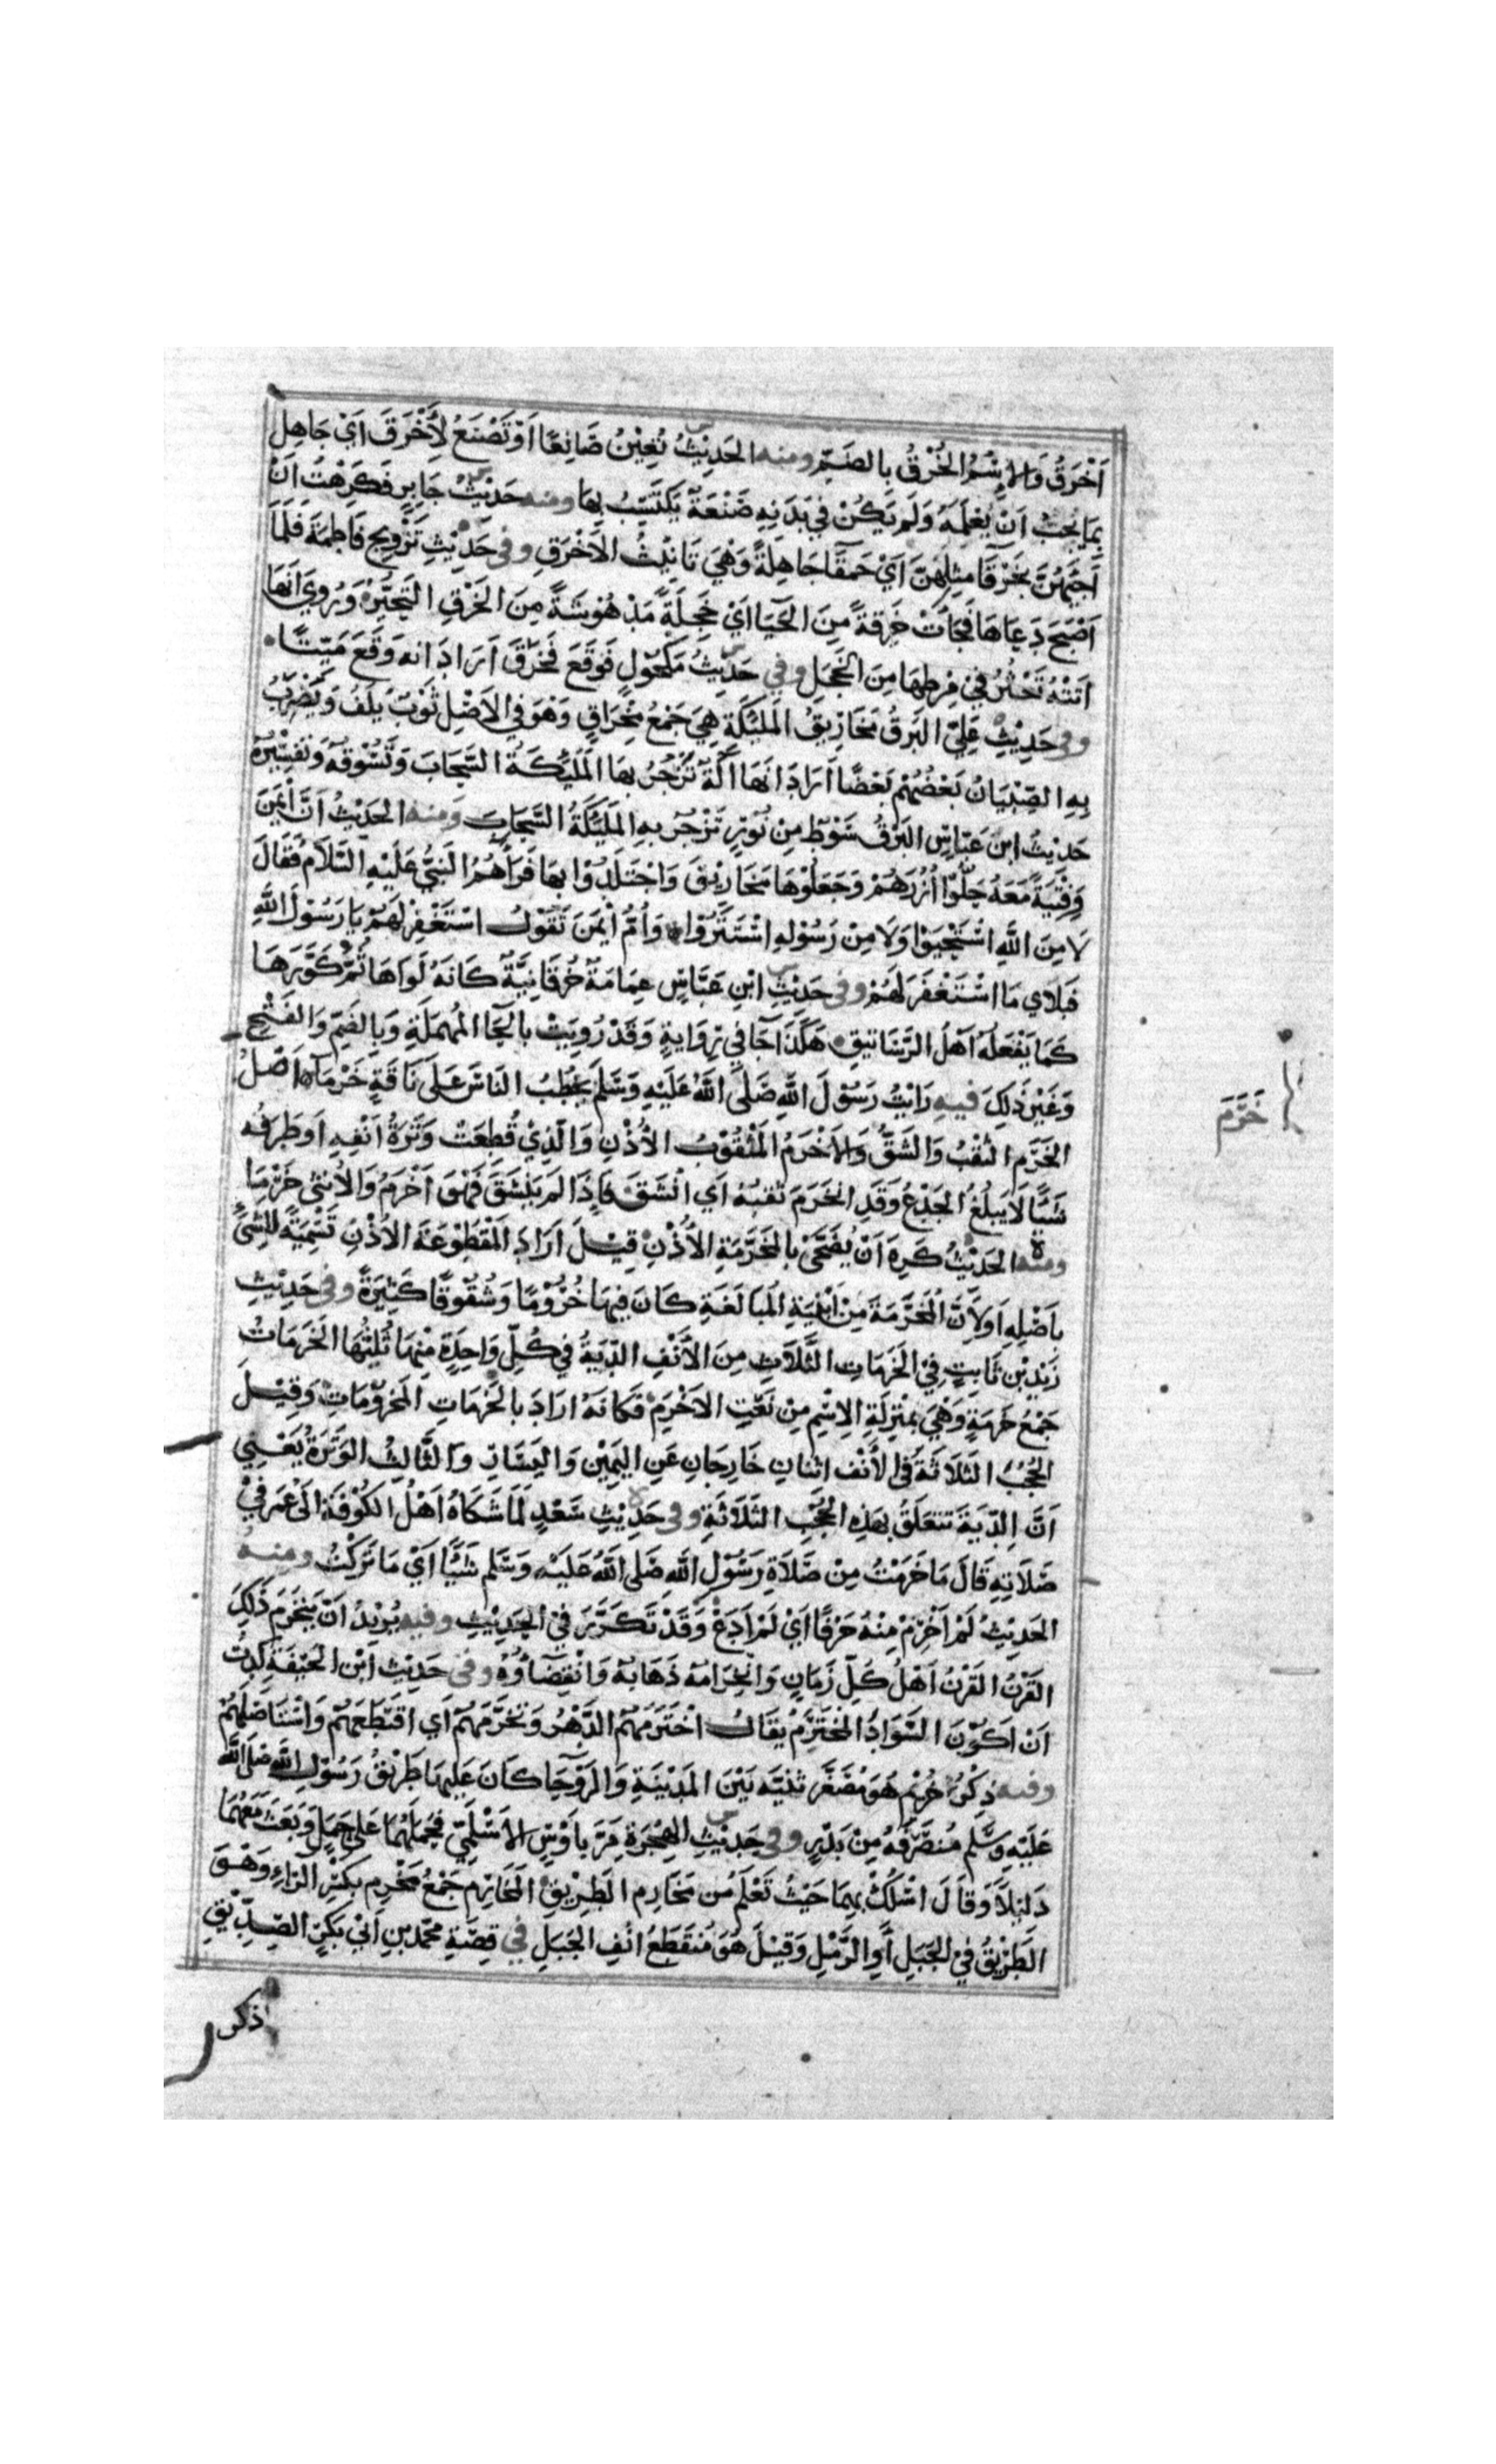 اَخْرَقُ وَالاِسْمُ الخُرْقُ بالضَمِّ ومنه الحَدِيْثُ تُعِيْنُ صَانِعًا اَوْ تَصْنَعُ لِأَخْرَقَ اَيْ جَاهِلٍ
بِمَا يَجِبُ اَنْ يَعْلَمَهُ وَلَمْ يَكُنْ فِي يَدَيْهِ صَنْعَةٌ يَكْتَسِبُ بِهَا ومنه حَدِيْثُ جَابِرٍ فَكَرِهْتُ اَنْ
اَجِيْهُنَّ بِخَرْقَآ مِثْلِهِنَّ اَيْ حَمْقَآ جَاهِلَةً وَهْيَ تَانِيْثُ الاَخْرَقِ وفى حَدِيْثِ تَزْوِيجِ فَاطِمَةَ فَلَمَّا
اَصْبَحَ دَعَاهَا فَجَاءَتْ خَرِقَةً مِنَ الحَيَا اَيْ خَجِلَةً مَدْهُوْشَةً مِنَ الخَرَقِ التَحَيُّرُ وَرُوِيَ اَنَهَا
اَتَتْهُ تَعْثُرُ فِيْ مِرْطِهَا مِنَ الخَجَلِ وفي حَدِيْثِ مَكْحُوْلٍ فَوَقَعَ فَخَرِقَ اَرَادَ انه وَقَعَ مَيِّتًا
وفى حَدِيْثِ عَلِيٍّ البَرْقُ مَخَارِيْقُ المَلٰئِكَةِ هِيَ جَمْعُ مِخْرَاقٍ وَهْوَ فِي الاَصْلِ ثَوْبٌ يُلَفُّ وَيَضْرِبُ
بِهِ الصِّبْيَانُ بَعْضُهُمْ بَعْضًا اَرَادَ اَنَهَا اٰلَةٌ تَزْجُرُ بِهَا المَلٰئِكَةُ السَّحَابَ وَتَسُوْقُهُ وَتَفْسِيْرُهُ
حَدِيْثُ ابنِ عَبّاسٍ البَرْقُ سَوْطٌ مِنْ نُوْرٍ تَزْجُرُ بِهِ المَلٰئِكَةُ السَّحَابَ وَمِنه الحَدِيْثُ اَنَّ اَيْمَنَ
وَفِتْيَةً مَعَهُ حَلُّوْا اُزُرَهُمْ وَجَعَلُوْهَا مَخَارِيْقَ وَاجْتَلَدُوْا بِهَا فَرَاٰهُمُ النَبِيُّ عَلَيْهِ السَّلَامُ فَقَالَ
لَا مِنَ اللّٰهِ اسْتَحْيَوْا وَلَا مِنْ رَسُوْلِهِ اسْتَتَرُوْا وَاُمُّ اَيْمَنَ تَقُوْلُ اسْتَغْفِرْ لَهُمْ يَا رَسُوْلَ اللّٰهِ
فَبِلَاْيٍ مَا اسْتَغْفَرَ لَهُمْ وفى حَدِيْثِ ابْنِ عَبَّاسٍ عِمَامَةٌ خُرْقَانِيَّةٌ كَانَهُ لَوَاهَا ثُمَّ كَوَّرَهَا
كَمَا يَفْعَلُهُ اَهْلُ الرَّسَاتِيْقِ هَكَذَا جَآ فِي رِوَايَةٍ وَقَدْ رُوِيَتْ بِالْحَا المُهْمَلَةِ وَبِالضَمِّ وَالفَتْحِ
وَغَيْرِ ذَلِكَ فيه رَايْتُ رَسُوْلَ اللّٰهِ صَلَّى اللّٰهُ عَلَيْهِ وَسَلَّمَ يَخْطُبُ النَاسَ عَلَى نَاقَةٍ خَرْمَآ اَصْلُ
الخَرْمِ الثَقْبُ وَالشَقُّ وَالاَخْرَمُ المَثْقُوْبُ الاُذُنِ وَالَّذِيْ قُطِعَتْ وَتَرَةُ اَنْفِهِ اَوْ طَرَفُه
شَيْأً لَا يَبْلُغُ الجَدْعَ وَقَدِ انْخَرَمَ ثَقْبُهُ اَيِ انْشَقَّ فَاِذَا لَمْ يَنْشَقَّ فَهُوَ اَخْرَمُ وَالاُنْثٰى خَرْمَآ
ومنه الحَدِيْثُ كَرِهَ اَنْ يُضَحّٰى بِالمُخَرَّمَةِ الاُذُنِ قِيْلَ اَرَادَ المَقْطُوْعَةَ الاُذُنِ تَسْمِيَةً لِلشَيْءِ
بِاَصْلِهِ اَوْ لِاَنَّ المُخَرَّمَةَ مِنْ اَبْنِيَةِ المُبَالَغَةِ كَانَ فِيهَا خُرُوْمًا وَشُقُوْقًا كَثِيْرَةً وفى حَدِيْثِ
زَيْدِ بْنِ ثَابِتٍ فِي الخَرَمَاتِ الثَّلَاثِ مِنَ الاَنْفِ الدِّيَةُ فِي كُلِّ وَاحِدَةٍ مِنْهَا ثُلُثُهَا الخَرَمَاتُ
جَمْعُ خَرَمَةٍ وَهْيَ بِمَنْزِلَةِ الاِسْمِ مِنْ نَعْتِ الاَخْرَمِ فَكَانَهُ اَرَادَ بالخَرَمَاتِ المَخْرُوْمَاتِ وَقِيْلَ
الحُجُبُ الثَلَاثَةُ فِى الاَنْفِ اثْنَانِ خَارِجَانِ عَنِ اليَمِيْنِ وَاليَسَارِ وَالثَّالِثُ الوَتَرَةُ يَعْنِي
اَنَّ الدِّيَةَ تَتَعَلَقُ بِهَذِهِ الحُجُبِ الثَلَاثَةِ وفى حَدِيْثِ سَعْدٍ لَمَّا شَكَاهُ اَهْلُ الكُوْفَةِ اِلَى عُمَرَ فِيْ
صَلَاتِهِ قَالَ مَا خَرَمْتُ مِنْ صَلَاةِ رَسُوْلِ اللّٰهِ صَلَّى اللّٰهُ عَلَيْهِ وَسَلَّم شَيْأً اَيْ مَا تَرَكْتُ ومنه
الحَدِيْثُ لَمْ اَخْرِمْ مِنْهُ حَرْفًا اَيْ لَمْ اَدَعْ وَقَدْ تَكَرَّرَ فِيْ الحَدِيْثِ وفيه يُرِيْدُ اَنْ يَنْخَرِمَ ذَلِكَ
القَرْنُ القَرْنُ اَهْلُ كُلِّ زَمَانٍ وَانْخِرَامُهُ ذَهَابُهُ وَانْقِضَاؤُهُ وفى حَدِيْثِ ابْنِ الحَنَفِيَّةِ كِدْتُ
اَنْ اَكُوْنَ السَّوَادُ المُخْتَرَمُ يُقَالُ اخْتَرَمَهُمُ الدَّهْرُ وَتَخَرَّمَهُمْ اَيِ اقْتَطَعَهُمْ وَاسْتَاصَلَهُمْ
وفيه ذِكْرُ خُرَيْمٍ هُوَ مُصَغَّر ثَنِيَّة بَيْنَ المَدِيْنَةِ وَالرَوْحَا كَانَ عَلَيهَا طَرِيْقُ رَسُوْلِ اللّٰهِ صَلَّى اللّٰه
عَلَيْهِ وَسَلَّم مُنْصَرَفَهُ مِنْ بَدْرٍ وفى حَدِيْثِ الهِجْرَةِ مَرَّ بِاَوْسٍ الاَسْلَمِيِّ فَحَمَلَهُمَا عَلَى جَمَلٍ وَبَعَثَ مَعَهُمَا
دَلِيْلًا وَقَالَ اسْلُكْ بِهِمَا حَيْثُ تَعْلَمُ مِنْ مَخَارِمِ الطَرِيْقِ المَخَارِمُ جَمْعُ مَخْرِمٍ بِكَسْرِ الرَاءِ وَهْوَ
الطَرِيْقُ فِيْ الجَبَلِ أَوِ الرَّمْلِ وَقِيْلَ هُوَ مُنْقَطَعُ اَنْفِ الجَبَلِ في قِصَّةِ مُحَمَّدِ بنِ اَبِيْ بَكْرٍ الصِّدِّيْقِ
ذكر
خَرَّمَ